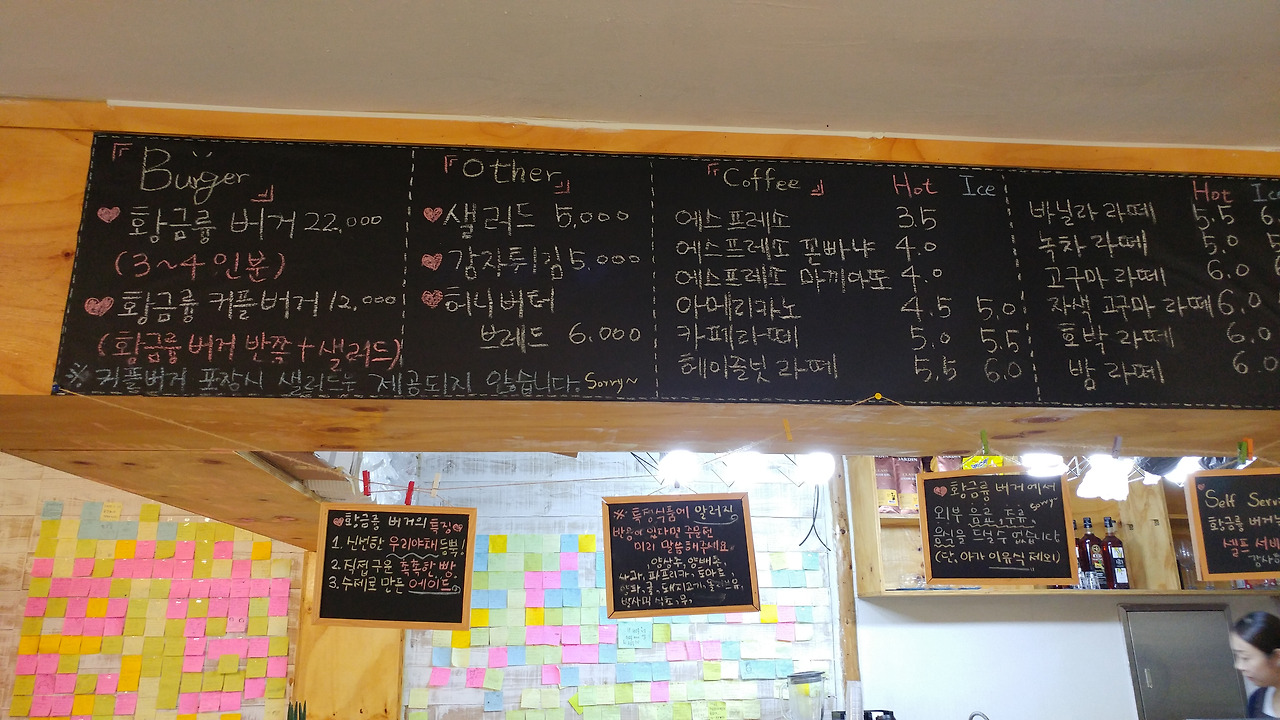 『Burger』
황금륭 버거 22,000
(3~4인분)
황금륭 커플버거 12,000
(황금륭 버거 반쪽+샐러드)
※ 커플버거 포장시 샐러드는 제공되진 않습니다. Sorry~
『Other』
샐러드 5,000
감자튀김 5,000
허니버터
브레드 6,000
『Coffee』 Hot Ice
에스프레소 3.5
에스프레소 꼰빠냐 4.0
에스프레소 마끼아또 4.0
아메리카노 4.5 5.0
카페라떼 5.0 5.5
헤이즐넛 라떼 5.5 6.0
Hot Ice
바닐라 라떼 5.5 6.
녹차 라떼 5.0
고구마 라떼 6.0
자색 고구마 라떼 6.0
호박 라떼 6.0
밤 라떼 6.0
황금륭 버거의 특징
1. 신선한 우리야채 듬뿍!
2. 직접 구운 촉촉한 빵.
3. 수제로 만든 에이드.
※ 특정식품에 알러지
반응이 있다면 주문전
미리 말씀해주세요.
양상추, 양배추,
사과, 파프리카, 토마토,
황금륭 버거에서
외부 음료, 주류, sorry~
음식을 드실수 없습니다
(단, 아가 이유식 제외)
Self Serv
황금륭 버거
셀프 서비
감사
JARDIN